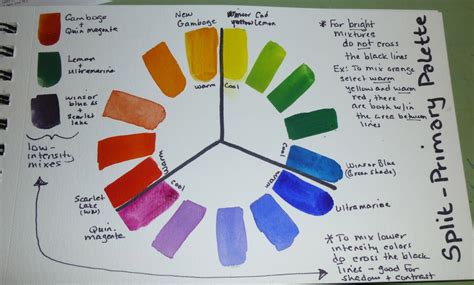 Gamboge
+
Quin magenta
Lemon
+
Ultramarine
Winsor
blue GS
+
Scarlet
lake
low-
intensity
mixes
New
Gamboge
Winsor Cad
yellow Lemon
Warm
Cool
Cool
Warm
Warm
Cool
Winsor Blue
(Green Shade)
Ultramarine
Scarlet
Lake
(W/N)
Quin.
magenta
* For bright
mixtures
do not cross
the black lines
Ex: To mix orange
select warm
yellow and warm
red, there
are both w/in
the area between
lines
* To mix lower
intensity colors
do cross the black
lines - good for
shadow + contrast
Split-Primary Palette